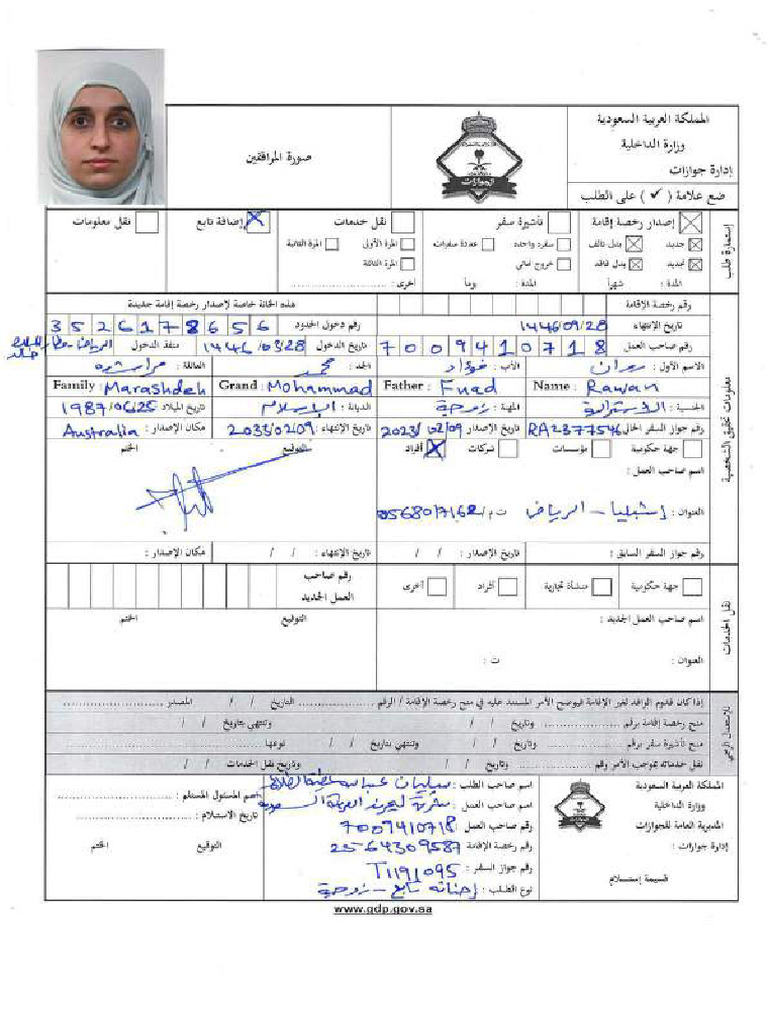 المملكة العربية السعودية
وزارة الداخلية
إدارة جوازات
ضع علامة ( ✓ ) على الطلب
صورة المرافقين
إستمارة طلب
إصدار رخصة إقامة تأشيرة سفر نقل خدمات إضافة تابع نقل معلومات
جديد بدل تالف سفرة واحدة عدة سفرات المرة الأولى المرة الثانية
تجديد بدل فاقد خروج نهائي المرة الثالثة
المدة : شهراً المدة : يوماً أخرى :
معلومات تحقيق الشخصية
رقم رخصة الإقامة هذه الخانة خاصة لإصدار رخصة إقامة جديدة
تاريخ الإنتهاء 1446/09/28 رقم دخول الحدود 3526178656
رقم صاحب العمل 7009410718 تاريخ الدخول 1446/03/28 منفذ الدخول الرياض مطار الملك خالد
الاسم الأول : روان الأب : فؤاد الجد : محمد العائلة : مراشده
Family : Marashdeh Grand : Mohammad Father : Fuad Name : Rawan
الجنسية : الاسترالية المهنة : زوجة الديانة : الإسلام تاريخ الميلاد 1987/06/25
رقم جواز السفر الحالي RA2377546 تاريخ الإصدار : 2023/02/09 تاريخ الإنتهاء : 2033/02/09 مكان الإصدار : Australia
جهة حكومية مؤسسات شركات أفراد التوقيع الختم
اسم صاحب العمل :
العنوان : إشبيليا - الرياض ت م/ 0568017162
رقم جواز السفر السابق : تاريخ الإصدار : / / تاريخ الإنتهاء : / / مكان الإصدار :
نقل الخدمات
جهة حكومية منشأة تجارية أفراد أخرى رقم صاحب العمل الجديد
اسم صاحب العمل الجديد : التوقيع الختم
العنوان : ت :
للإستعمال الرسمي
إذا كان قدوم الوافد لغير الإقامة فيوضح الأمر المستند عليه في منح رخصة الإقامة / الرقم التاريخ / / المصدر
منح رخصة إقامة برقم وتاريخ / / وتنتهي بتاريخ / /
منح تأشيرة سفر برقم وتاريخ / / وتنتهي بتاريخ / / نوعها
نقل خدماته بموجب الأمر رقم وتاريخ / / وتاريخ نقل الخدمات / /
المملكة العربية السعودية
وزارة الداخلية
المديرية العامة للجوازات
إدارة جوازات :
قسيمة إستلام
اسم صاحب الطلب : سليمان عباس
اسم صاحب العمل : العربية السعودية
رقم صاحب العمل : 7009410718
رقم رخصة الإقامة : 2564309587
رقم جواز السفر : T1191095
نوع الطلب : إضافة تابع - زوجة
اسم المسئول المستلم :
تاريخ الاستلام :
التوقيع الختم
www.gdp.gov.sa